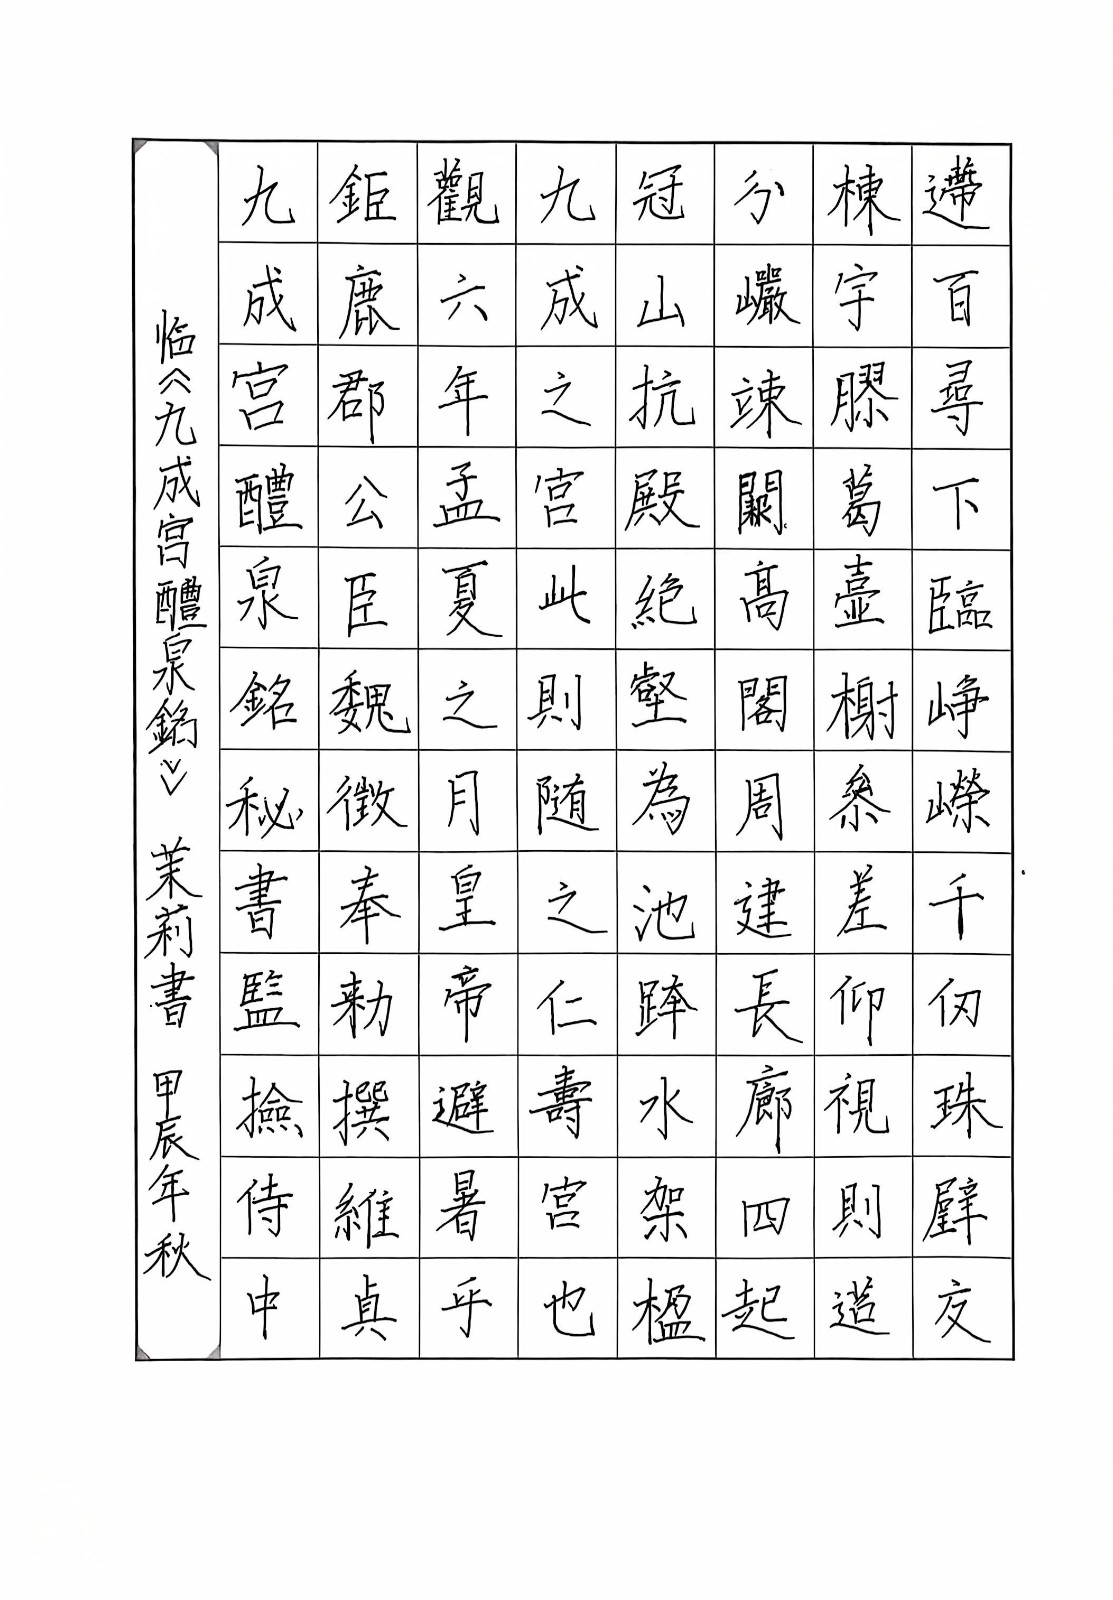 九成宫醴泉銘秘書監撿侍中
鉅鹿郡公臣魏徵奉勅撰維貞
觀六年孟夏之月皇帝避暑乎
九成之宫此則随之仁壽宫也
冠山抗殿絶壑為池跨水架楹
分巖竦闕高閣周建長廊四起
棟宇膠葛臺榭叅差仰視則迢
遰百尋下臨崢嶸千仞珠璧交
临《九成宫醴泉銘》 茉莉書 甲辰年秋